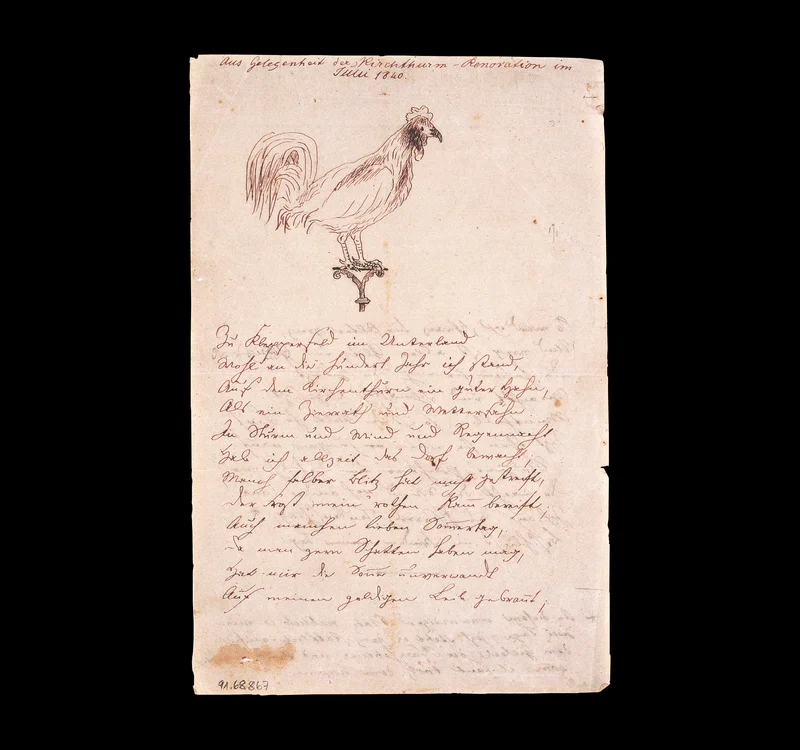 Aus Gelegenheit der Kirchthurm-Renovation im
Julii 1840.
Zu Klepperfeld im Unterland
Wohl an die hundert Jahr ich stand,
Auf dem Kirchenthurm ein guter Hahn,
Als ein Zierrath und Wetterfahn.
In Sturm und Wind und Regennacht
Hab ich allzeit das Dorf bewacht;
Manch falber Blitz hat mich gestreift,
Der Frost mein' rothen Kam bereift,
Auch manchen lieben Somertag,
Da man gern Schatten haben mag,
Hat mir die Sonne unverwandt
Auf meinen goldigen Leib gebrant;
91.68.867